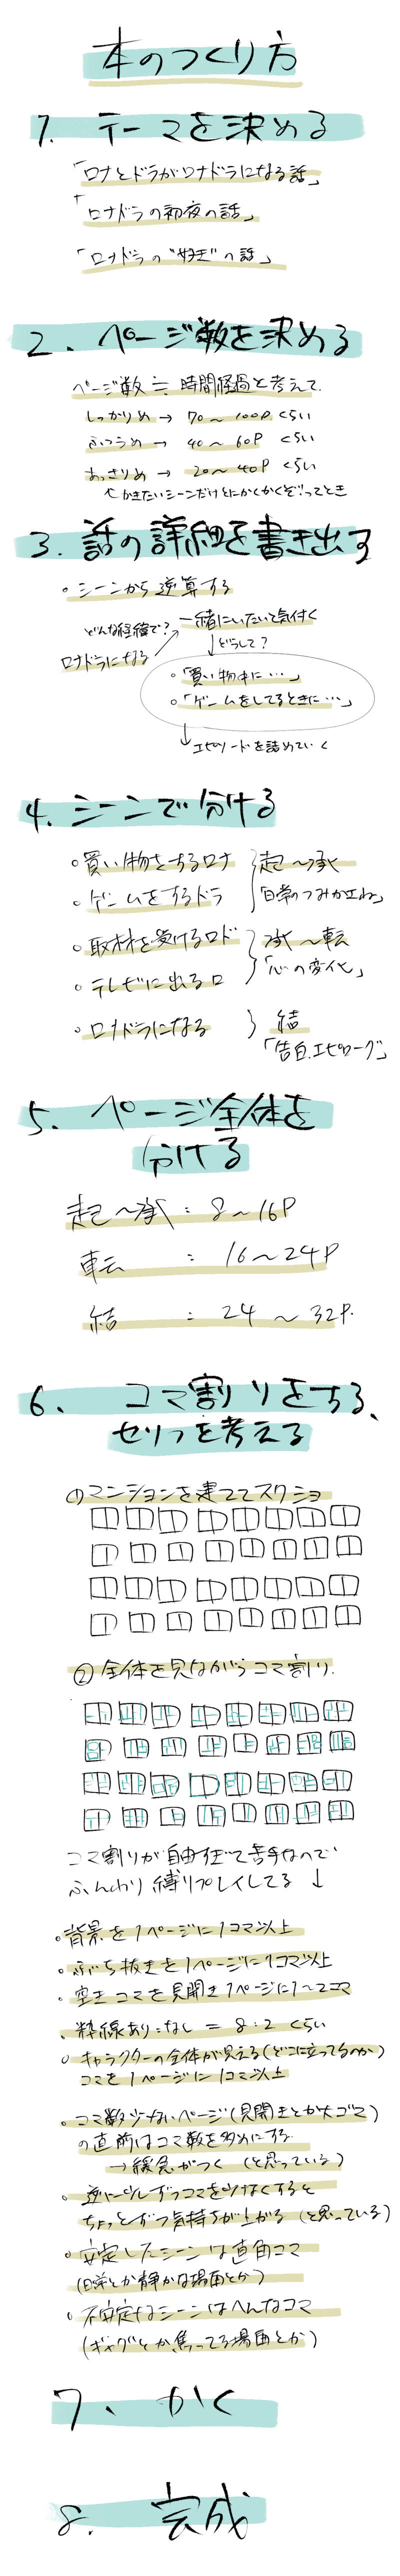 本のつくり方
1. テーマを決める
「ロナとドラがロナドラになる話」
「ロナドラの初夜の話」
「ロナドラの"好き"の話」
2、ページ数を決める
ページ数≒時間経過と考えて
しっかりめ→70〜100Pくらい
ふつうめ→40〜60Pくらい
あっさりめ→20〜40Pくらい
↖かきたいシーンだけとにかくかくぞ!ってとき
3. 話の詳細を書き出す
○シーンから逆算する
どんな経緯で?
一緒にいたいて気付く
ロナドラになる
↓どうして?
○「買い物中に…」
○「ゲームをしてるときに…」
↓エピソードを詰めていく
4. シーンで分ける
○買い物をするロナ
○ゲームをするドラ
起〜承
「日常のつみかさね」
○取材を受けるロド
○テレビに出るロ
承〜転
「心の変化」
○ロナドラになる
結
「告白、エピローグ」
5、ページ全体を
分ける
起〜承:8〜16P
転:16〜24P
結:24〜32P.
6、コマ割りをする、
セリフを考える
①マンションを建ててスクショ
②全体を見ながらコマ割り.
コマ割りが自由枠で苦手なので
ふんわり縛りプレイしてる↓
○背景を1ページに1コマ以上
○ぶち抜きを1ページに1コマ以上
・空きコマを見開き1ページに1〜2コマ
、枠線あり:なし=8:2くらい
○キャラクターの全体が見える(どこに立ってるのか)
コマを1ページに1コマ以上
○コマ数少ないページ(見開きとか大ゴマ)
の直前はコマ数を多めにする
→緩急がつく(と思っている)
○逆に少しずつコマを少なくすると
ちょっとずつ気持ちが上がる(と思っている)
○安定したシーンは直角コマ
(日常とか静かな場面とか)
○不安定なシーンはへんなコマ
(ギャグとか焦ってる場面とか)
7、かく
8. 完成